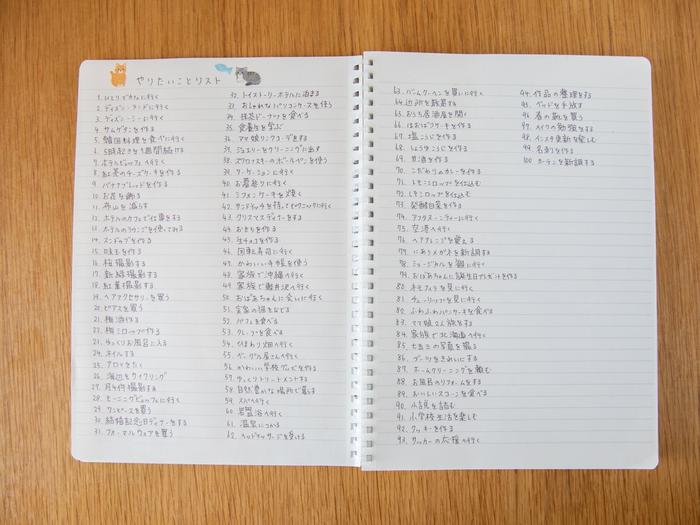 やりたいことリスト
1. ひとりでカフェに行く
2. ディズニーランドに行く
3. ディズニーシーに行く
4. サムゲタンを作る
5. 韓国料理を食べに行く
6. 5時起きを1週間続ける
7. ホテルビュッフェへ行く
8. 紅茶のチーズケーキを作る
9. バナナブレッドを作る
10. お花を飾る
11. 布山を減らす
12. ホテルのカフェで仕事をする
13. ホテルのラウンジを使ってみる
14. スンドゥブを作る
15. 味玉を作る
16. 桜撮影する
17. 新緑撮影する
18. 紅葉撮影する
19. ヘアアクセサリーを買う
20. ピアスを買う
21. 梅酒作る
22. 梅シロップ作る
23. ゆっくりお風呂に入る
24. ネイルする
25. アロマをたく
26. 海辺をサイクリング
27. 月を何撮影する
28. モーニングビュッフェに行く
29. ワンピースを買う
30. 結婚記念日ディナーをする
31. フォーマルウェアを買う
32. トイストーリーホテルに泊まる
33. おしゃれなパソコンケースを使う
34. 抹茶ドーナツを食べる
35. 栄養性を学ぶ
36. ママ娘リンクコーデをする
37. ジュエリーをクリーニングに出す
38. スワロフスキーのボールペンを使う
39. ワーケーションに行く
40. お墓参りに行く
41. シフォンケーキを焼く
42. サンドイッチを持ってピクニックに行く
43. クリスマスディナーをする
44. おもちを作る
45. 生チョコを作る
46. 回転寿司に行く
47. かわいい手帳を使う
48. 家族で沖縄へ行く
49. 家族で軽井沢へ行く
50. おばあちゃんに会いに行く
51. 実家の猫をなでる
52. パフェを食べる
53. クレープを食べる
54. ひまわり畑へ行く
55. ベーグル屋さんへ行く
56. かわいい学校グッズを作る
57. ゆっくりトリートメントする
58. 自然豊かな場所で暮らす
59. スパへ行く
60. 岩盤浴へ行く
61. 温泉につかる
62. ヘッドマッサージを受ける
63. バームクーヘンを買いに行く
64. 近所を散策する
65. おうち居酒屋を開く
66. はちみつクッキーを作る
67. 塩こうじを作る
68. しょうゆこうじを作る
69. 甘酒を作る
70. こだわりのカレーを作る
71. レモンシロップを仕込む
72. しそシロップを仕込む
73. 発酵白菜を作る
74. アフタヌーンティーに行く
75. 空港へ行く
76. ヘアアレンジを覚える
77. にありメガネを新調する
78. ミュージカルを観に行く
79. おばあちゃんに誕生日プレゼントを作る
80. ネモフィラを見に行く
81. チューリップを見に行く
82. ふわふわパンケーキを食べる
83. ママ娘2人旅をする
84. 家族で北海道へ行く
85. 七五三の写真を撮る
86. ブーツをきれいにする
87. ホームクリーニングを頼む
88. お風呂のリフォームをする
89. おいしいスコーンを食べる
90. 小説を読む
91. 小学校生活を楽しむ
92. クッキーを作る
93. サッカーの応援へ行く
94. 作品の整理をする
95. ベッドを手放す
96. 春の靴を買う
97. メイクの勉強をする
98. インスタ更新を楽しむ
99. 名刺を作る
100. カーテンを新調する